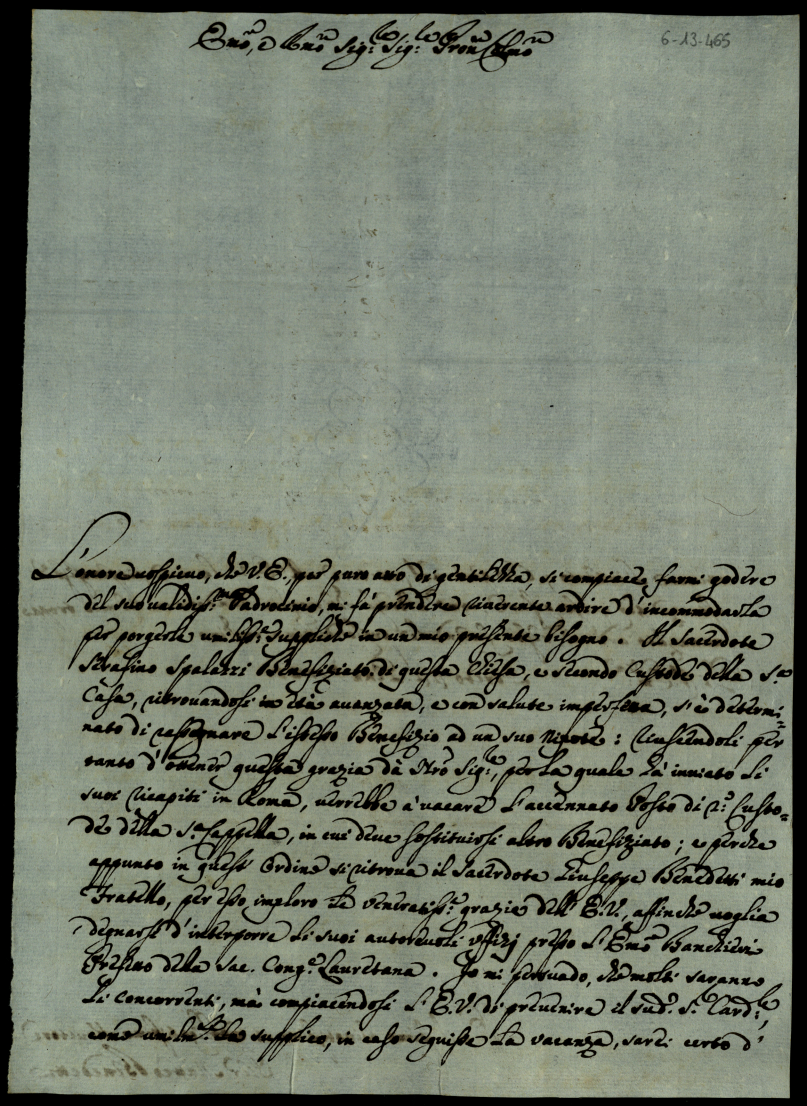 Emõ, e Rmõ Sig:r Sig:r Pron Colmõ
6-13-465
L'onore cospicuo, che V. E., per puro atto di gentilezza, si compiace farmi godere
del suo validiss:o Padrocinio, mi fà prendere riverente ardire d'incommodarla
per porgerle umiliss:e suppliche in un mio presente bisogno. Il Sacerdote
Serafino Spalazzi Benefiziato di questa Chiesa, e secondo Custode della S.a
Casa, ritrovandosi in età avanzata, e con salute imperfetta, s'è determi=
nato di rassegnare l'istesso Benefizio ad un suo Nipote: riuscendoli per
tanto d'ottener questa grazia dà Nrõ Sig:re, per la quale hà inviato li
suoi ricapiti in Roma, verrebbe à vacare l'accennato Posto di 2:o Custo=
de della S.a Cappella, in cui deve sostituirsi altro Benefiziato; e perche
appunto in quest'Ordine si ritrova il Sacerdote Giuseppe Benedetti mio
Fratello, per esso imploro le veneratiss:e grazie dell'E. V., affinche voglia
degnarsi d'interporre li suoi autorevoli uffizj presso l'Emõ Banchieri
Prefetto della Sac. Cong:e Lauretana. Io mi persuado, che molti saranno
li concorrenti, mà compiacendosi l'E. V. di prevenire il sud:o S:r Card:le,
come umilm:e la supplico, in caso seguisse la vacanza, sarei certo d'